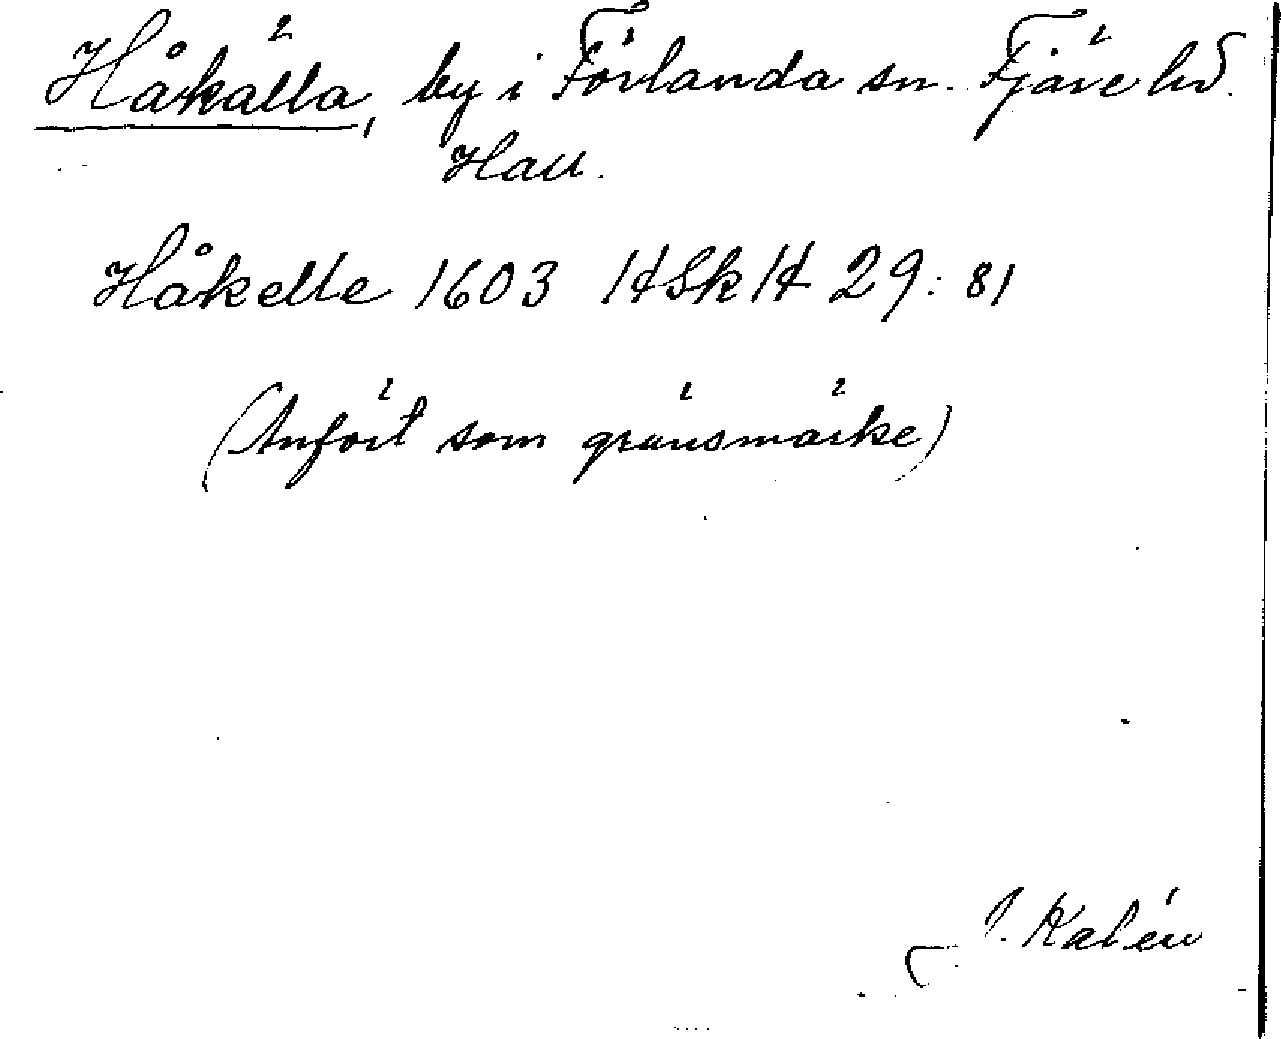 Håkälla, by i Förlanda sn. Fjäre hd.
Hall.
Håkelle 1603 HSkH 29: 81
(Anfört som gränsmärke)
J. Kalén